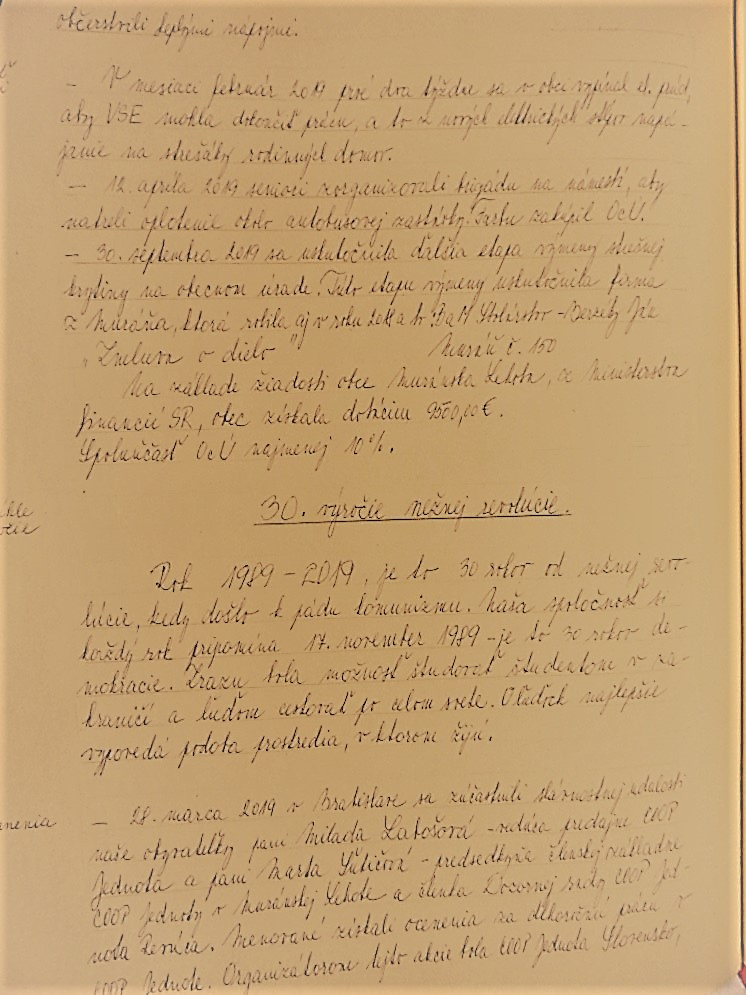 občerstvili teplými nápojmi.
— V mesiaci február 2019 prvé dva týždne sa v obci vypínal el. prúd,
aby VSE mohla dokončiť prácu, a to z nových elektrických stĺpov napá-
janie na strešáky rodinných domov.
— 12. apríla 2019 seniori zorganizovali brigádu na námestí, aby
natreli oplotenie okolo autobusovej zastávky. Farbu zakúpil OcÚ.
— 30. septembra 2019 sa uskutočnila ďalšia etapa výmeny strešnej
krytiny na obecnom úrade. Túto etapu výmeny uskutočnila firma
z Muráňa, ktorá robila aj v roku a to BaM Stolárstvo - Berzéty Ján
„Zmluva o dielo" Muráň č. 150
Na základe žiadosti obce Muránska Lehota, z Ministerstva
financií SR, obec získala dotáciu 9500,00 €.
Spoluúčasť OcÚ najmenej 10 %.
30. výročie nežnej revolúcie.
Rok 1989 - 2019, je to 30 rokov od nežnej revo-
lúcie, kedy došlo k pádu komunizmu. Naša spoločnosť si
každý rok pripomína 17. november 1989 - je to 30 rokov de-
mokracie. Zrazu bola možnosť študovať študentom v za-
hraničí a ľuďom cestovať po celom svete. O ľuďoch najlepšie
vypovedá podoba prostredia, v ktorom žijú.
nenia — 28. marca 2019 v Bratislave sa zúčastnili slávnostnej udalosti
naše obyvateľky pani Milada Latošová - vedúca predajne COOP
Jednota a pani Marta - predsedkyňa členskej základne
COOP Jednoty v Muránskej Lehote a členka Dozornej rady COOP Jed-
nota Revúca. Menované získali ocenenia za dlhoročnú prácu v
COOP Jednote. Organizátorom tejto akcie bola COOP Jednota Slovensko,